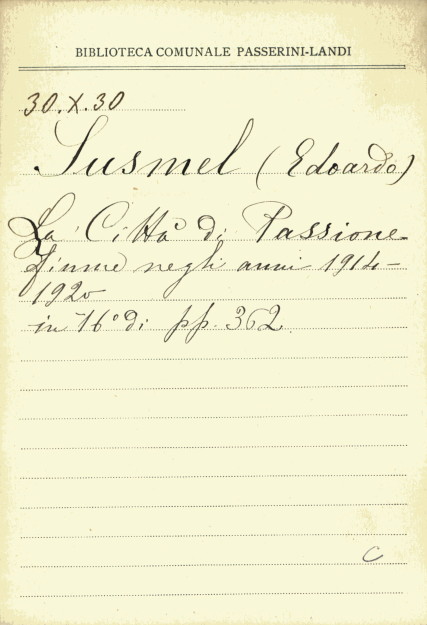 BIBLIOTECA COMUNALE PASSERINI-LANDI
30.X.30
Susmel (Edoardo)
La Città di Passione
Fiume negli anni 1914-
1920
in 16° di pp. 362
C